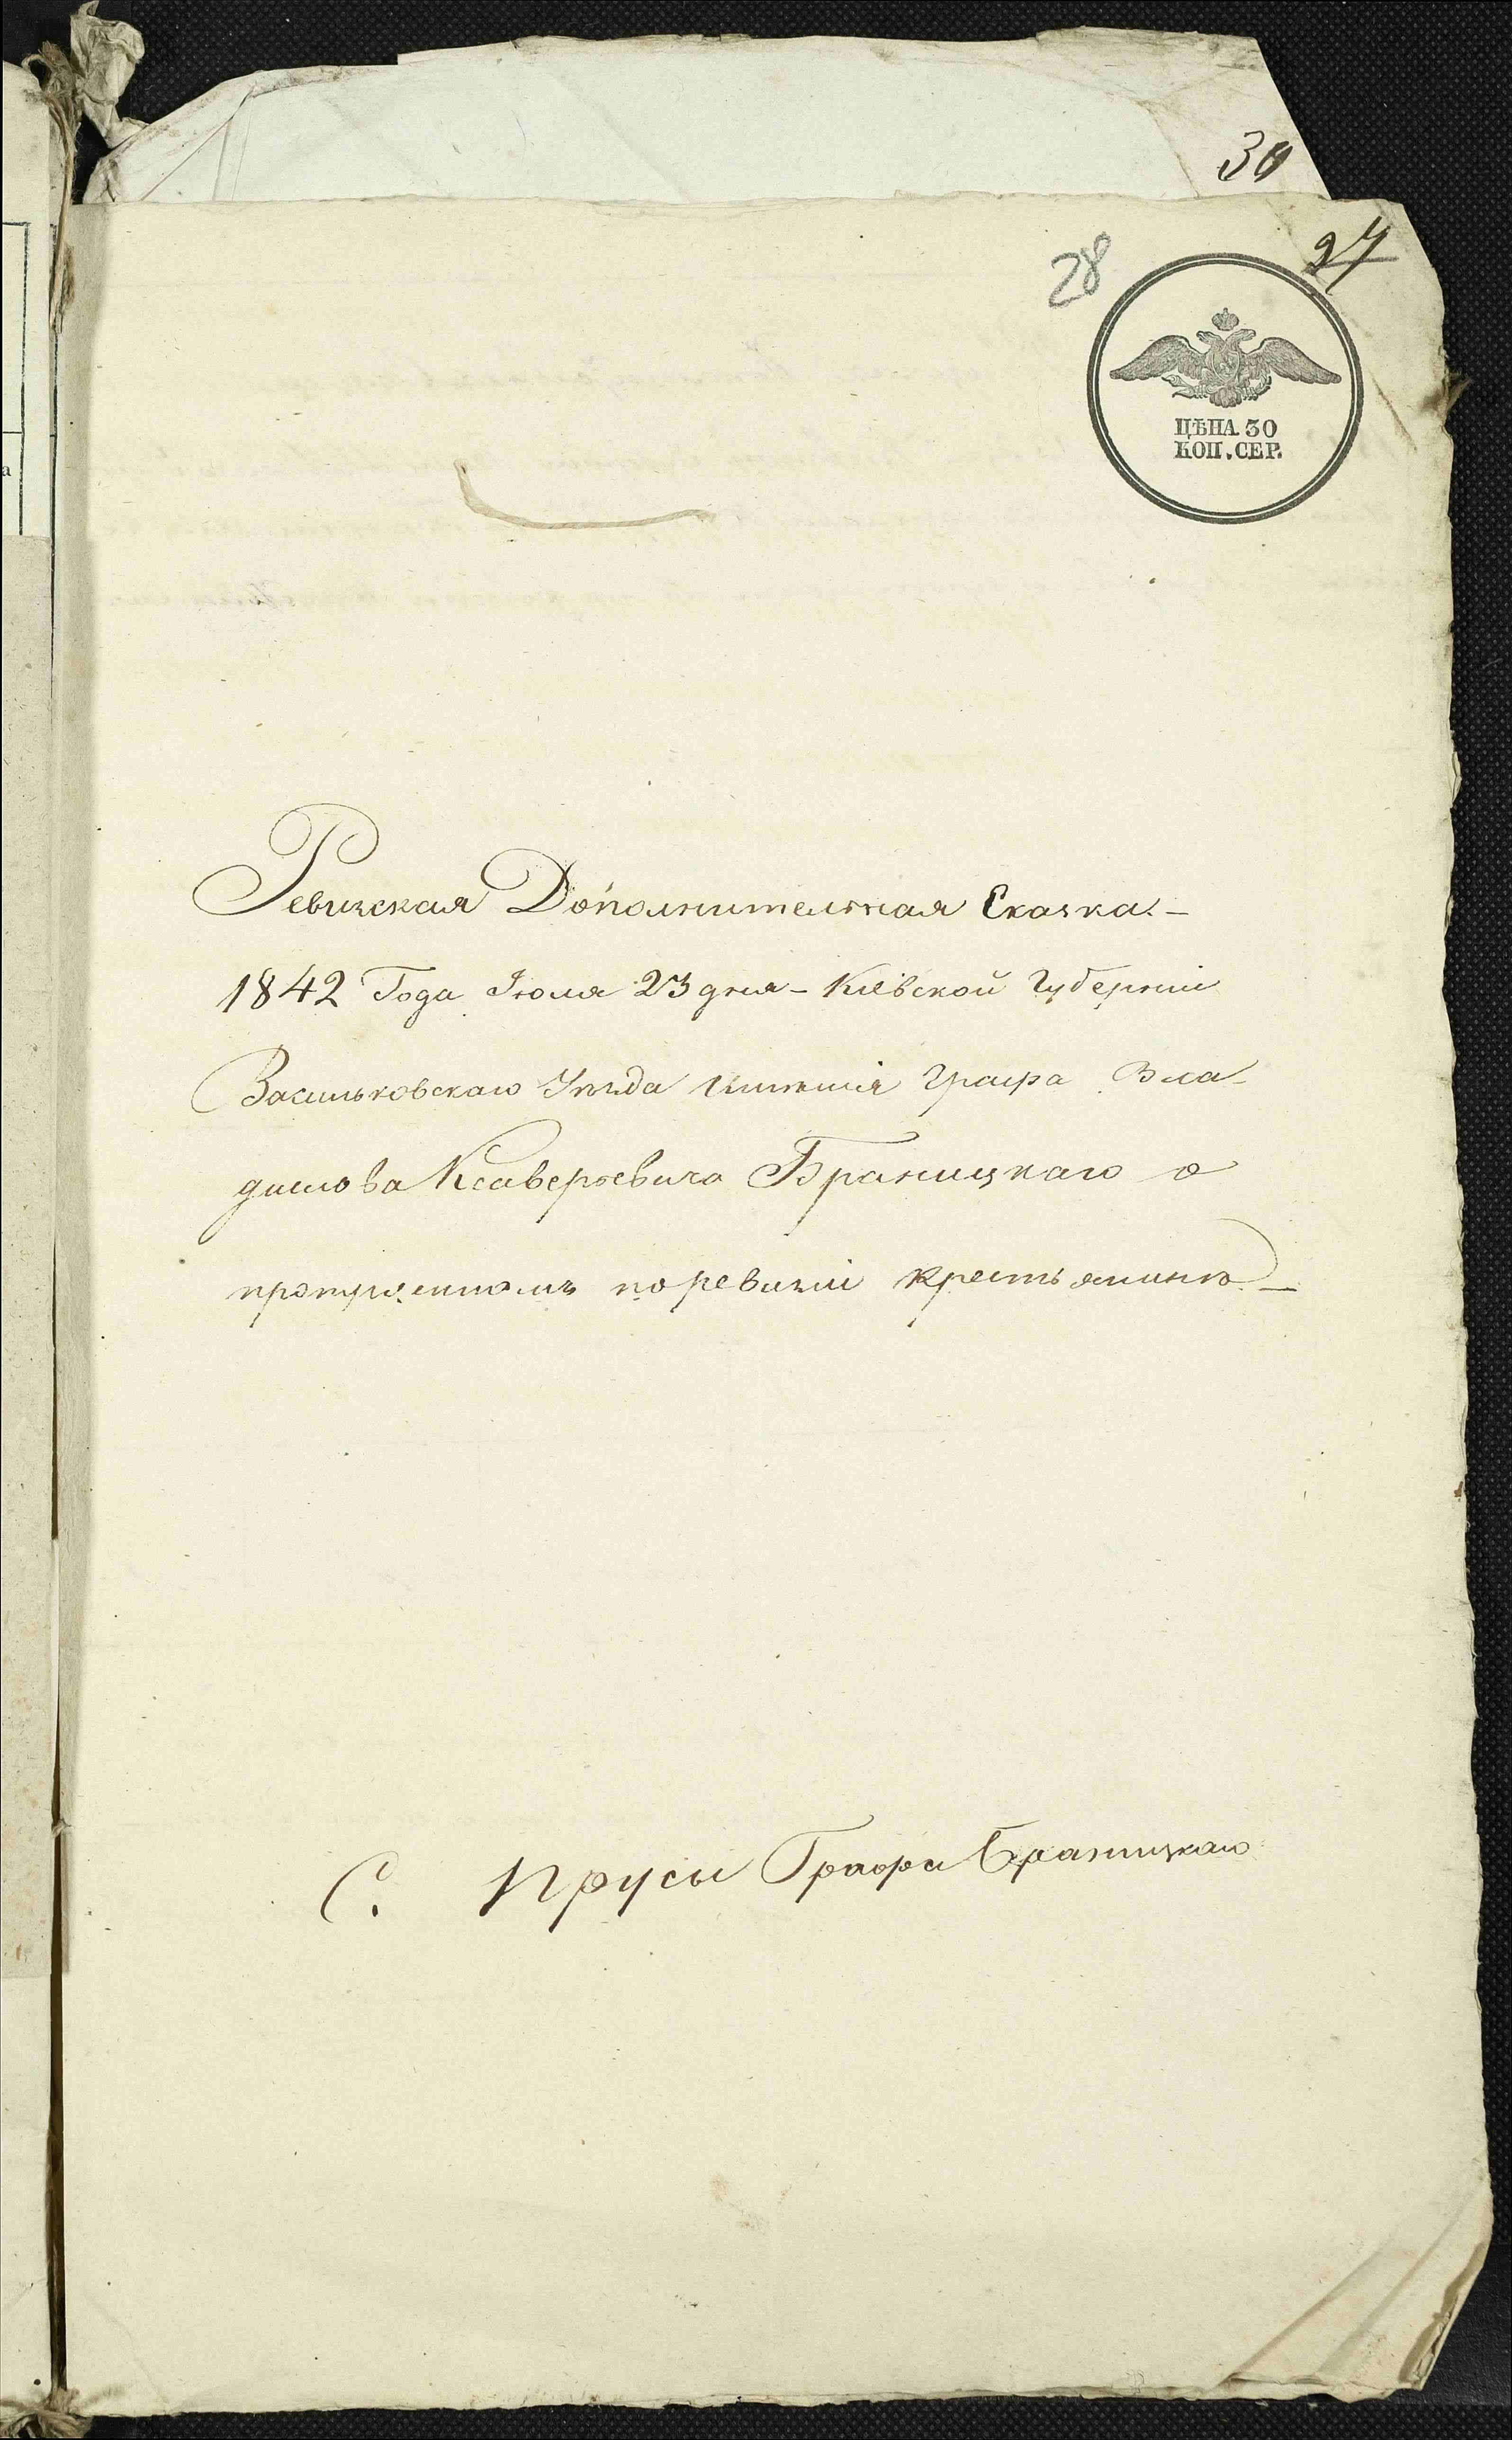 30
28
27
ЦѢНА 30
КОП. СЕР.
Ревизская Дополнительная Сказка.-
1842 Года Іюля 23 дня - Кіевской Губерніи
Васильковскаго Уѣзда Имѣнія Графа Вла-
дислава Ксаверьевича Браницкаго о
пропущенномъ по ревизіи крестьянинѣ.-
С. Прусы Графа Браницкаго